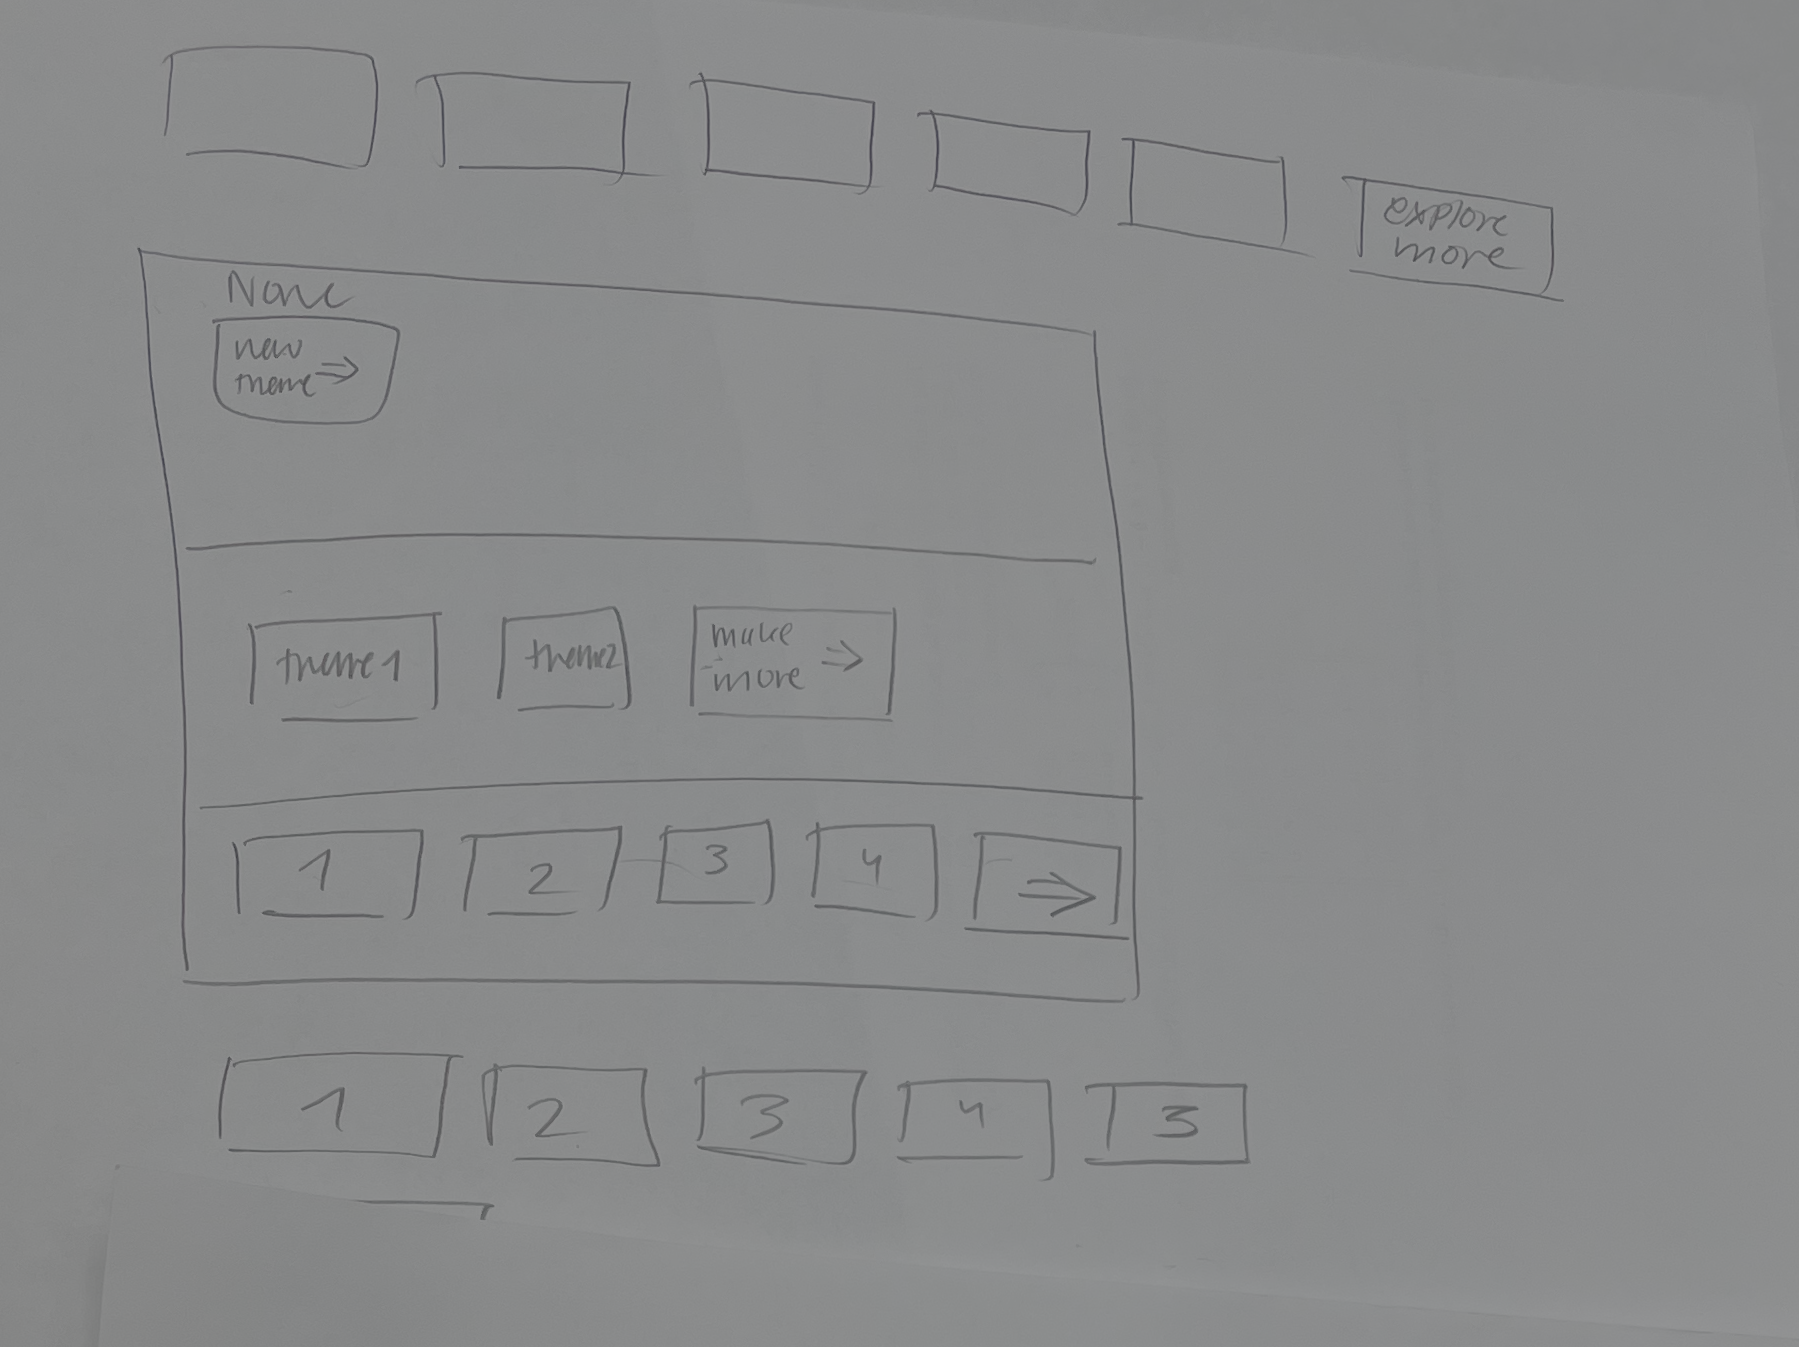 explore
more
None
new
theme ⇒
theme1
theme2
make
more ⇒
1
2
3
4
⇒
1
2
3
4
3